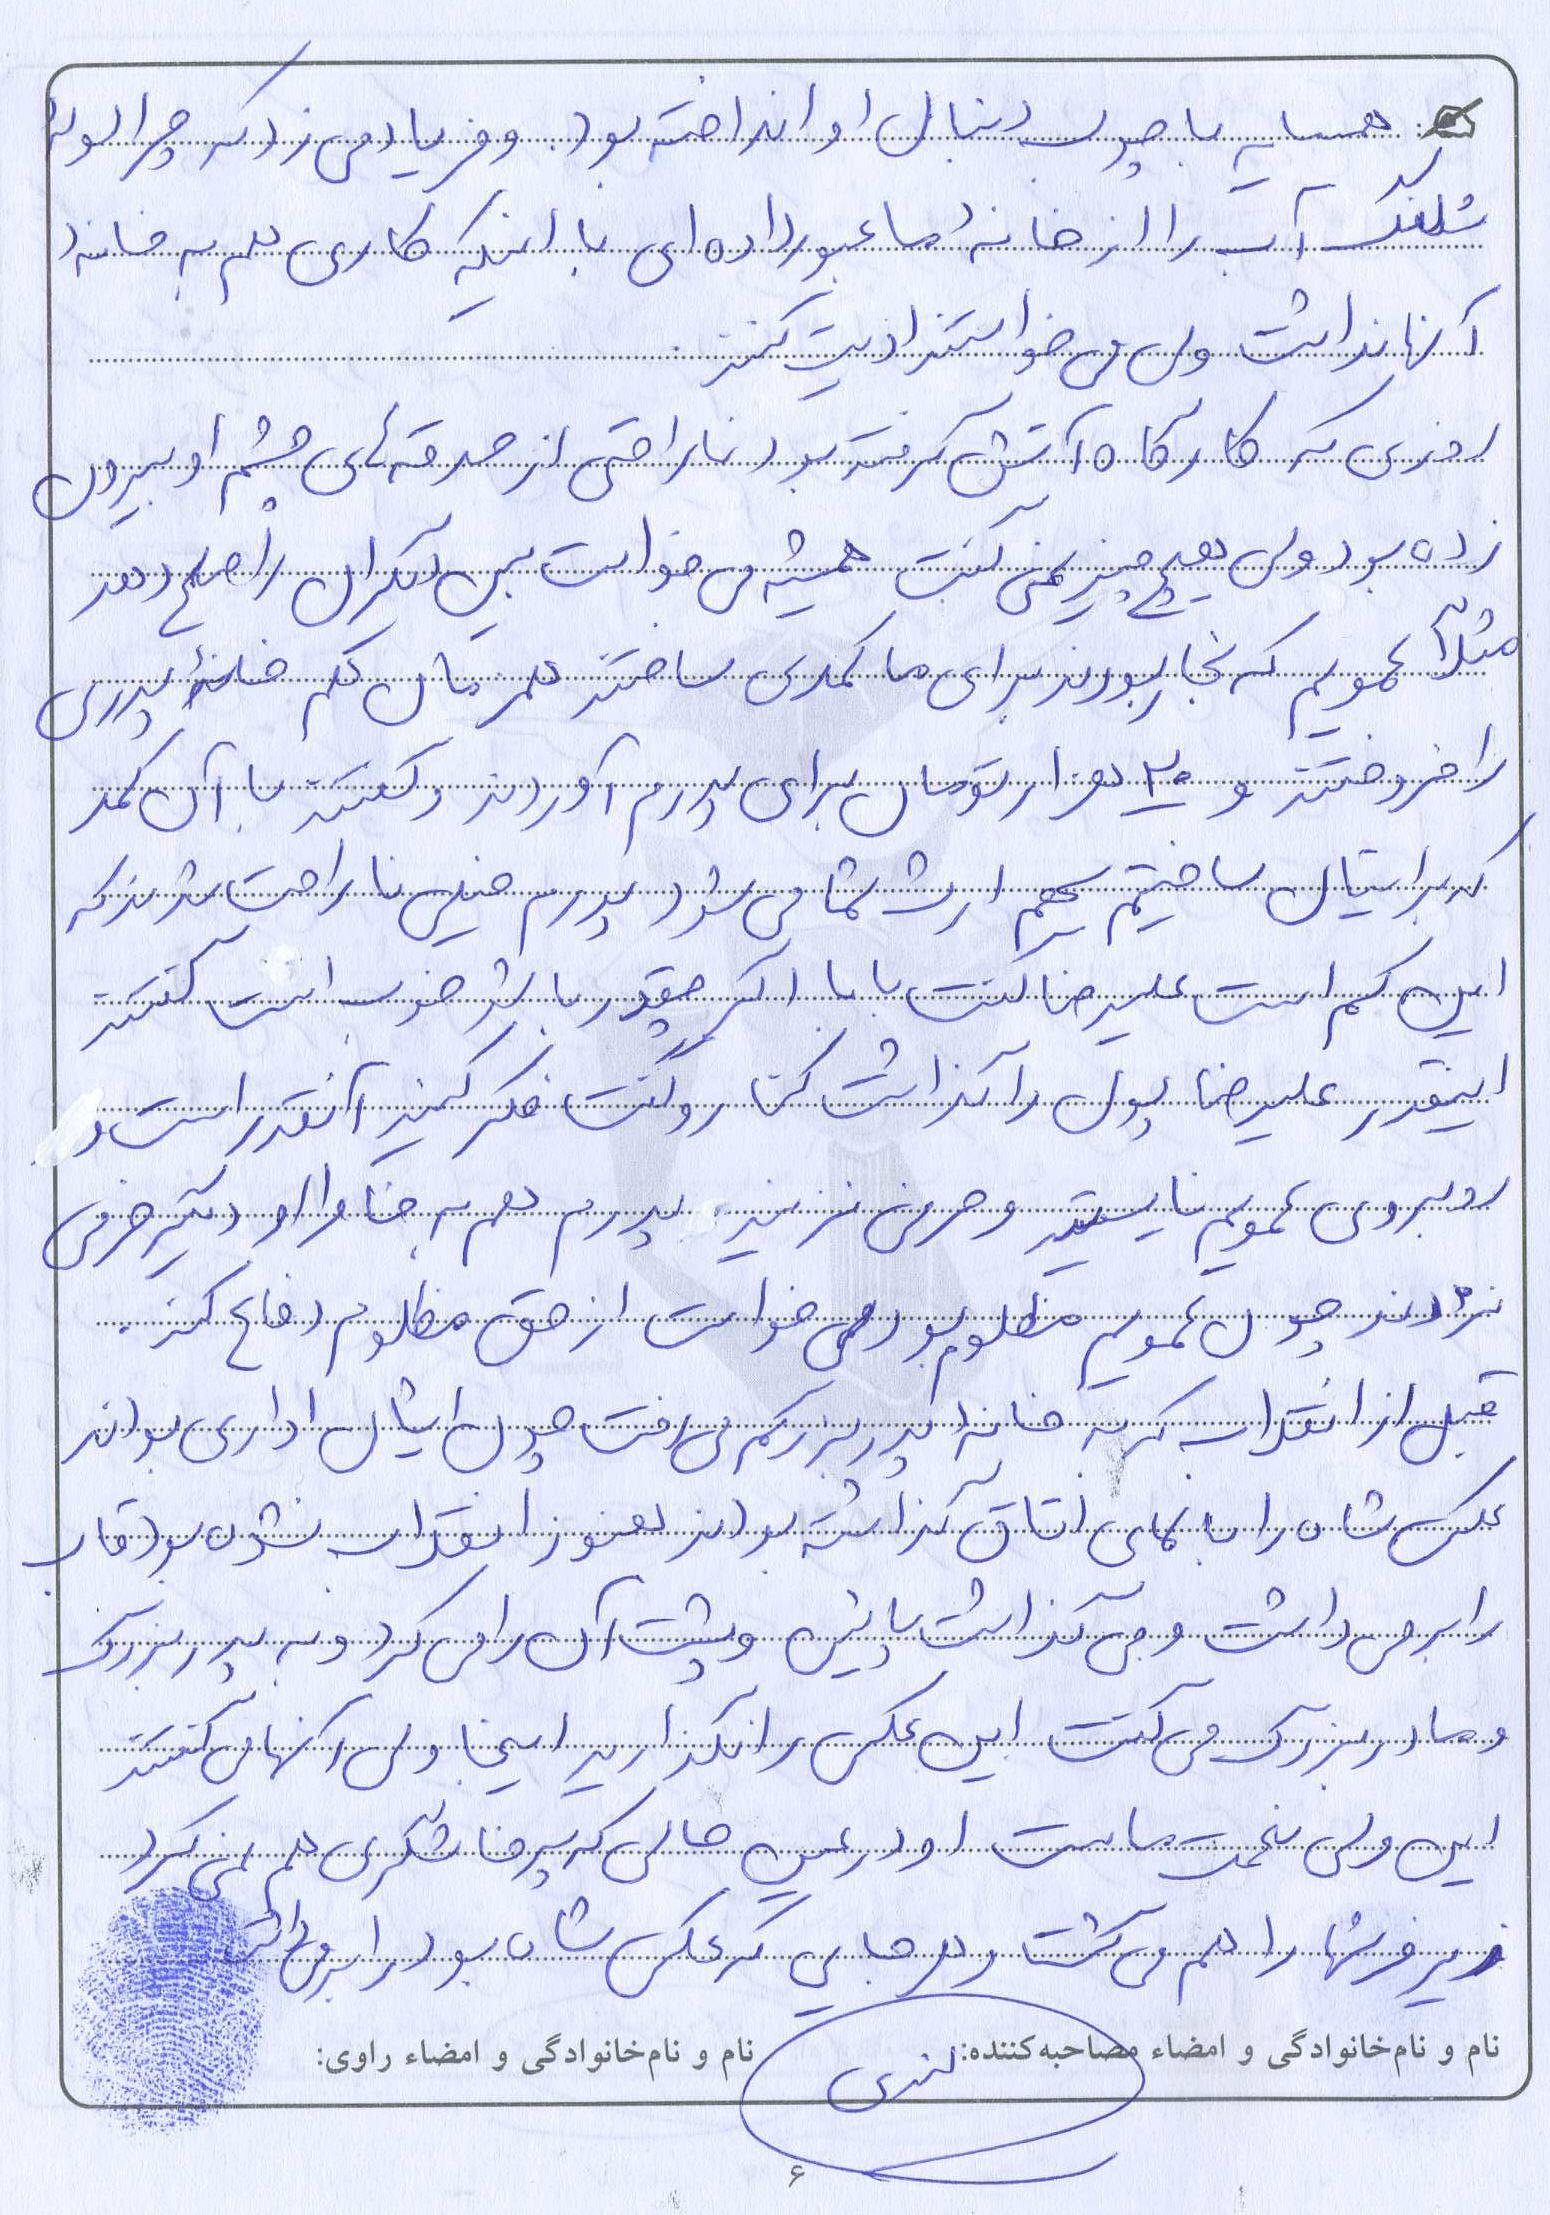 همسایه با چوب دنبال او انداخته بود. و فریاد می زد که چرا لوله
شلنگ آب را از خانه ما عبور داده ای با اینکه کاری هم به خانه
آنها نداشت ولی می خواستند اذیت کنند.
روزی که کارگاه آتش گرفته بود ناراحتی از حدقه های چشم او بیرون
زده بود ولی هیچ چیز نمی گفت همیشه می خواست بین دیگران را صلح دهد
مثلاً عمویم که نجار بودند برای ما کمدی ساختند همزمان هم خانه پدری
را فروختند و ۲۰ هزار تومان برای پدرم آوردند و گفتند با آن کمد
که براتیان ساختیم سهم ارث شما می شود پدرم خیلی ناراحت شدند که
این کم است علیرضا گفت بابا اگر چقدر باشد خوب است گفتند
اینقدر علیرضا پول را گذاشت کنار و گفت فکر کنید آنقدر است و
روبروی عمویم نایستید و حرفی نزنید پدرم هم به خاطر او دیگر حرفی
نزدند چون عمویم مظلوم بود می خواست از حق مظلوم دفاع کند.
قبل از انقلاب که به خانه پدر بزرگم می رفت چون ایشان اداری بودند
عکس شاه را بالای اتاق گذاشته بودند هنوز انقلاب نشده بود قاب
را بر می داشت و می گذاشت پائین و پشت آن را می کرد و به پدر بزرگ
و مادر بزرگ می گفت این عکس را نگذارید اینجا ولی آنها می گفتند
این ولی نعمت ماست او در عین حالی که پرخاشگری هم نمی کرد
زیر فرشها را هم می گشت و هر جایی که عکس شاه بود را بر می داشت
نام و نام‌خانوادگی و امضاء مصاحبه‌کننده:
نام و نام‌خانوادگی و امضاء راوی:
۶